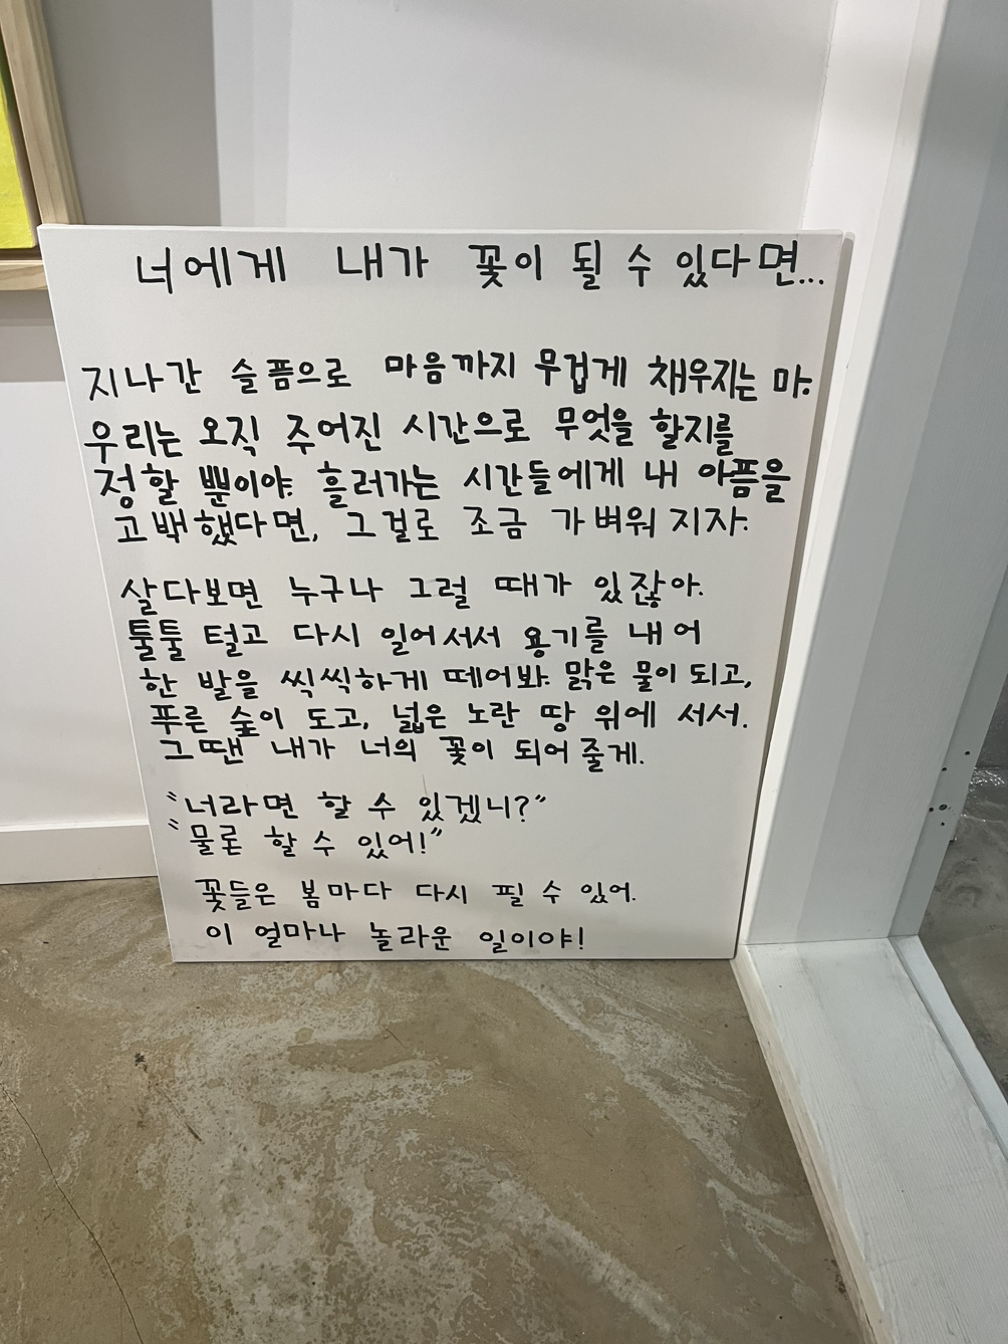 너에게 내가 꽃이 될 수 있다면...
지나간 슬픔으로 마음까지 무겁게 채우지는 마.
우리는 오직 주어진 시간으로 무엇을 할지를
정할 뿐이야. 흘러가는 시간들에게 내 아픔을
고백했다면, 그걸로 조금 가벼워 지자.
살다보면 누구나 그럴 때가 있잖아.
툴툴 털고 다시 일어서서 용기를 내어
한 발을 씩씩하게 떼어봐. 맑은 물이 되고,
푸른 숲이 도고, 넓은 노란 땅 위에 서서.
그땐 내가 너의 꽃이 되어 줄게.
"너라면 할 수 있겠니?"
"물론 할 수 있어!"
꽃들은 봄마다 다시 필 수 있어.
이 얼마나 놀라운 일이야!